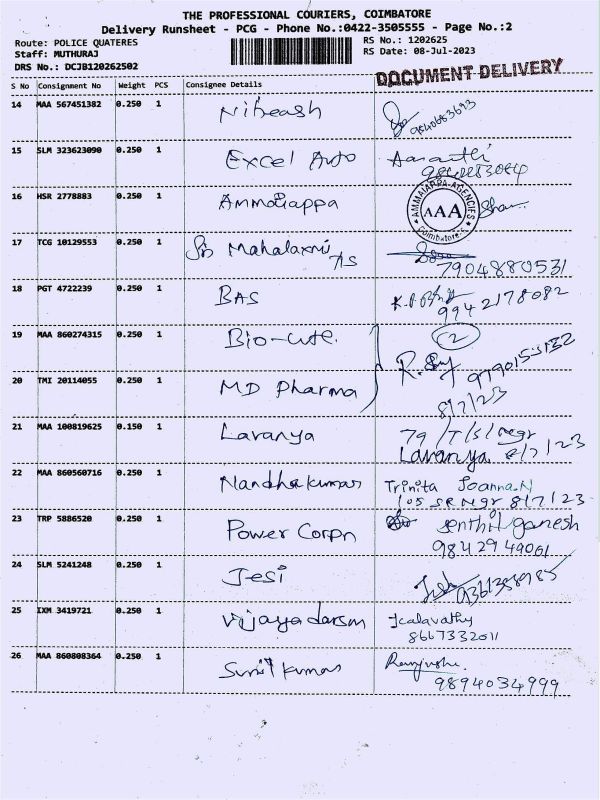 THE PROFESSIONAL COURIERS, COIMBATORE
Delivery Runsheet - PCG - Phone No.:0422-3505555 - Page No.:2
Route: POLICE QUATERES
RS No.: 1202625
Staff: MUTHURAJ
RS Date: 08-Jul-2023
DRS No.: DCJB120262502
DOCUMENT DELIVERY
S No Consignment No Weight PCS Consignee Details
14 MAA 567451382 0.250 1 Nitheash
15 SLM 323623090 0.250 1 Excel Auto
16 HSR 2778883 0.250 1 Ammaiappa
AMMAIAPPA AGENCIES
AAA
Coimbatore
17 TCG 10129553 0.250 1 Sri Mahalaxmi
T/S
7904880531
18 PGT 4722239 0.250 1 BAS
9942178082
19 MAA 860274315 0.250 1 Bio-cute.
2
9790155132
20 TMI 20114055 0.250 1 MD Pharma
8/7/23
21 MAA 100819625 0.150 1 Lavanya 79/T/S/Ngr
Lavanya 8/7/23
22 MAA 860560716 0.250 1 Nandhakumar Trinita Joanna.N
105 SR Ngr 8/7/23
23 TRP 5886520 0.250 1 Power Corpn Senthil ganesh
9842949001
24 SLM 5241248 0.250 1 Jesi
25 IXM 3419721 0.250 1 Vijayadarsm Kalavathy
8667332011
26 MAA 860808364 0.250 1 Sunil kumar
9894034999